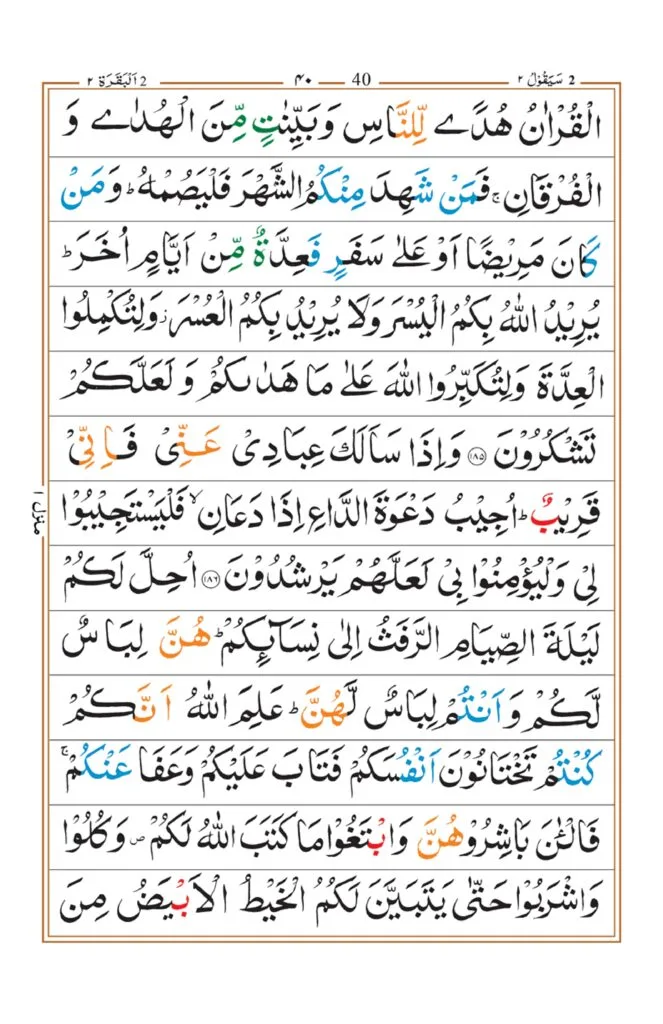 2 سَيَقُوْلُ ٢ 40 ۴۰ 2 اَلْبَقَرَة ٢
الْقُرْاٰنُ هُدًے لِّلنَّاسِ وَبَيِّنٰتٍ مِّنَ الْهُدٰے وَ
الْفُرْقَانِ ۚ فَمَنْ شَهِدَ مِنْكُمُ الشَّهْرَ فَلْيَصُمْهُ ؕ وَمَنْ
كَانَ مَرِيْضًا اَوْ عَلٰے سَفَرٍ فَعِدَّةٌ مِّنْ اَيَّامٍ اُخَرَ ؕ
يُرِيْدُ اللّٰهُ بِكُمُ الْيُسْرَ وَلَا يُرِيْدُ بِكُمُ الْعُسْرَ ؗ وَلِتُكْمِلُوا
الْعِدَّةَ وَلِتُكَبِّرُوا اللّٰهَ عَلٰے مَا هَدٰىكُمْ وَ لَعَلَّكُمْ
تَشْكُرُوْنَ ﴿۱۸۵﴾ وَاِذَا سَاَلَكَ عِبَادِىْ عَنِّىْ فَاِنِّىْ
قَرِيْبٌ ؕ اُجِيْبُ دَعْوَةَ الدَّاعِ اِذَا دَعَانِ ۙ فَلْيَسْتَجِيْبُوْا
لِىْ وَلْيُؤْمِنُوْا بِىْ لَعَلَّهُمْ يَرْشُدُوْنَ ﴿۱۸۶﴾ اُحِلَّ لَكُمْ
لَيْلَةَ الصِّيَامِ الرَّفَثُ اِلٰى نِسَآئِكُمْ ؕ هُنَّ لِبَاسٌ
لَّكُمْ وَ اَنْتُمْ لِبَاسٌ لَّهُنَّ ؕ عَلِمَ اللّٰهُ اَنَّكُمْ
كُنْتُمْ تَخْتَانُوْنَ اَنْفُسَكُمْ فَتَابَ عَلَيْكُمْ وَعَفَا عَنْكُمْ ۚ
فَالْـٰٔنَ بَاشِرُوْهُنَّ وَابْتَغُوْا مَا كَتَبَ اللّٰهُ لَكُمْ ۖ وَكُلُوْا
وَاشْرَبُوْا حَتّٰى يَتَبَيَّنَ لَكُمُ الْخَيْطُ الْاَبْيَضُ مِنَ
منزل ۱